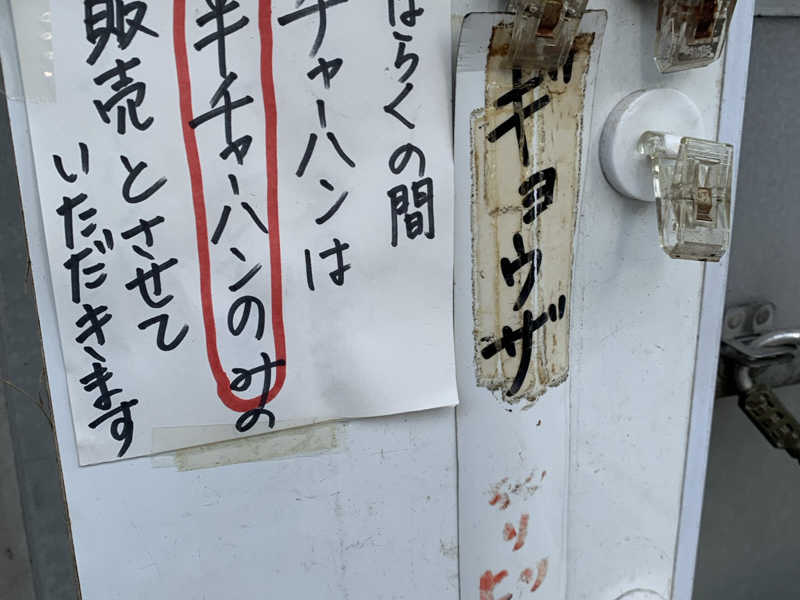 ばらくの間
チャーハンは
半チャーハンのみの
販売とさせて
いただきます
ギョウザ